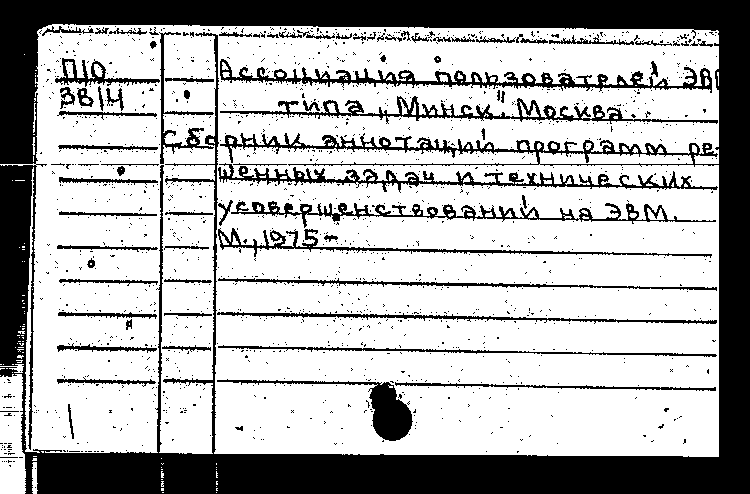 П10 Ассоциация пользователей ЭВМ
ЗВ14 типа „Минск". Москва.
Сборник аннотаций программ ре-
шенных задач и технических
усовершенствований на ЭВМ.
М., 1975-